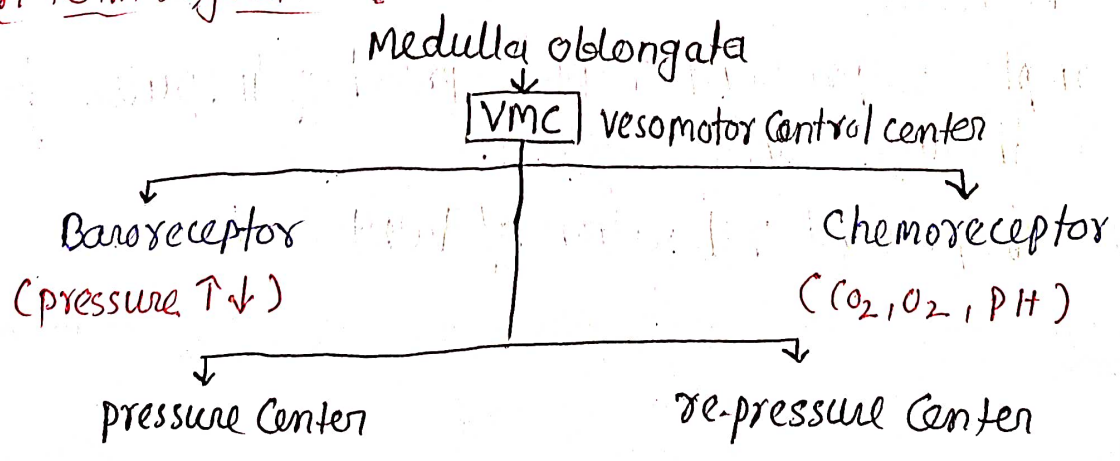 Medulla oblongata
VMC vesomotor control center
Baroreceptor Chemoreceptor
(pressure ↑↓) (CO2, O2, PH)
pressure center re-pressure center